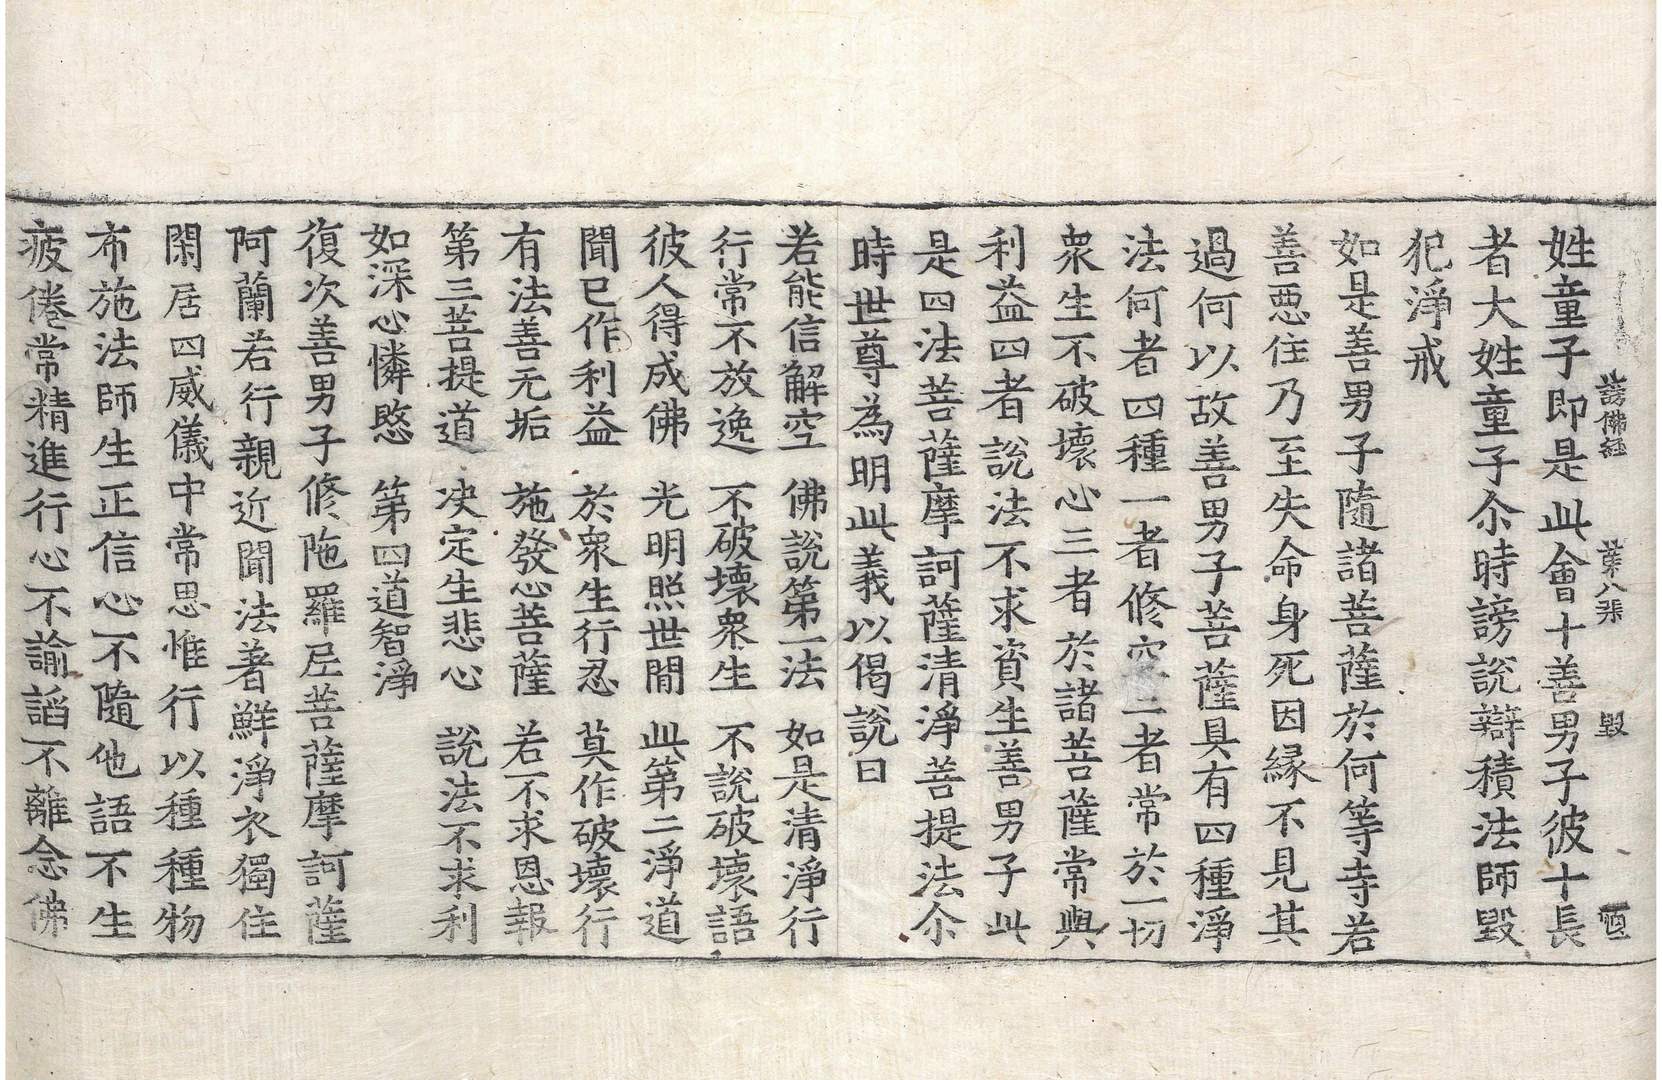 謗佛経 苐八張 毀 恒
姓童子即是此會十善男子彼十長
者大姓童子尒時謗說辯積法師毀
犯淨戒
如是善男子隨諸菩薩於何等寺若
善惡住乃至失命身死因緣不見其
過何以故善男子菩薩具有四種淨
法何者四種一者修空二者常於一切
衆生不破壞心三者於諸菩薩常與
利益四者說法不求資生善男子此
是四法菩薩摩訶薩清淨菩提法尒
時世尊為明此義以偈說曰
若能信解空 佛說第一法 如是清淨行
行常不放逸 不破壞衆生 不說破壞語
彼人得成佛 光明照世間 此第二淨道
聞已作利益 於衆生行忍 莫作破壞行
有法善无垢 施發心菩薩 若不求恩報
第三菩提道 决定生悲心 說法不求利
如深心憐愍 第四道智淨
復次善男子修陁羅𡰱菩薩摩訶薩
阿蘭若行親近聞法著鮮淨衣獨住
閑居四威儀中常思惟行以種種物
布施法師生正信心不隨他語不生
疲倦常精進行心不諭謟不離念佛